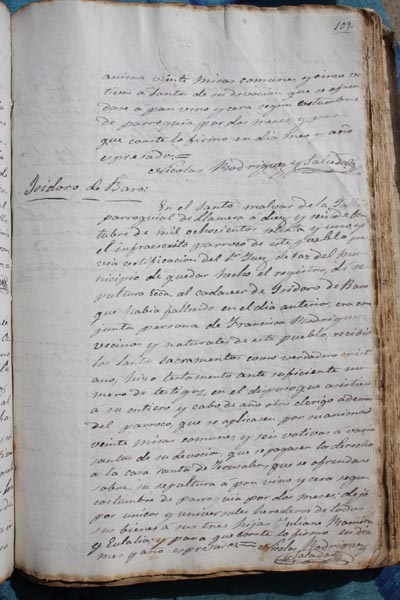 109.
anima veinte misas comunes, y cinco vo
tivas a Santos de su devocion que se ofren
dase a pan vino y cera segun costumbre
de parroquia por dos meses, y para
que conste lo firmo en dia mes y año
espresados=
Nicolas Rodriguez y Salzedas
Ysidoro de Baro:
En el Santo
parroquial de Llamera a diez y seis de Oc
tubre de mil ochocientos setenta y uno yo
el infraescrito parroco de este pueblo pre
via certificacion del Sr. Juez de Paz del mu
nicipio de quedar hecho el registro, di se
pultura Ecca. al cadaver de Ysidoro de Baro
que habia fallecido en el dia anterior, era con
junta persona de Francisca Rodriguez
vecinos y naturales de este pueblo, recibio
los Santos Sacramentos como verdadero cristi
ano, hizo testamento ante suficiente nu
mero de testigos, en el dispuso que asistiesen
a su entierro y cabo de año otro clerigo ademas
del parroco, que se aplicasen por su anima
veinte misas comunes, y seis votivas a varios
santos de su devocion, que se pagasen los derechos
a la casa santa de Jerusalen, que se ofrendase
sobre su sepultura a pan vino y cera segun
costumbre de parroquia por dos meses, dejo
por unicos y universales herederos de todos
sus bienes a sus tres hijos Juliana Ramon
y Eulalia y para que conste lo firmo en dia
mes y año espresados= Nicolas Rodriguez